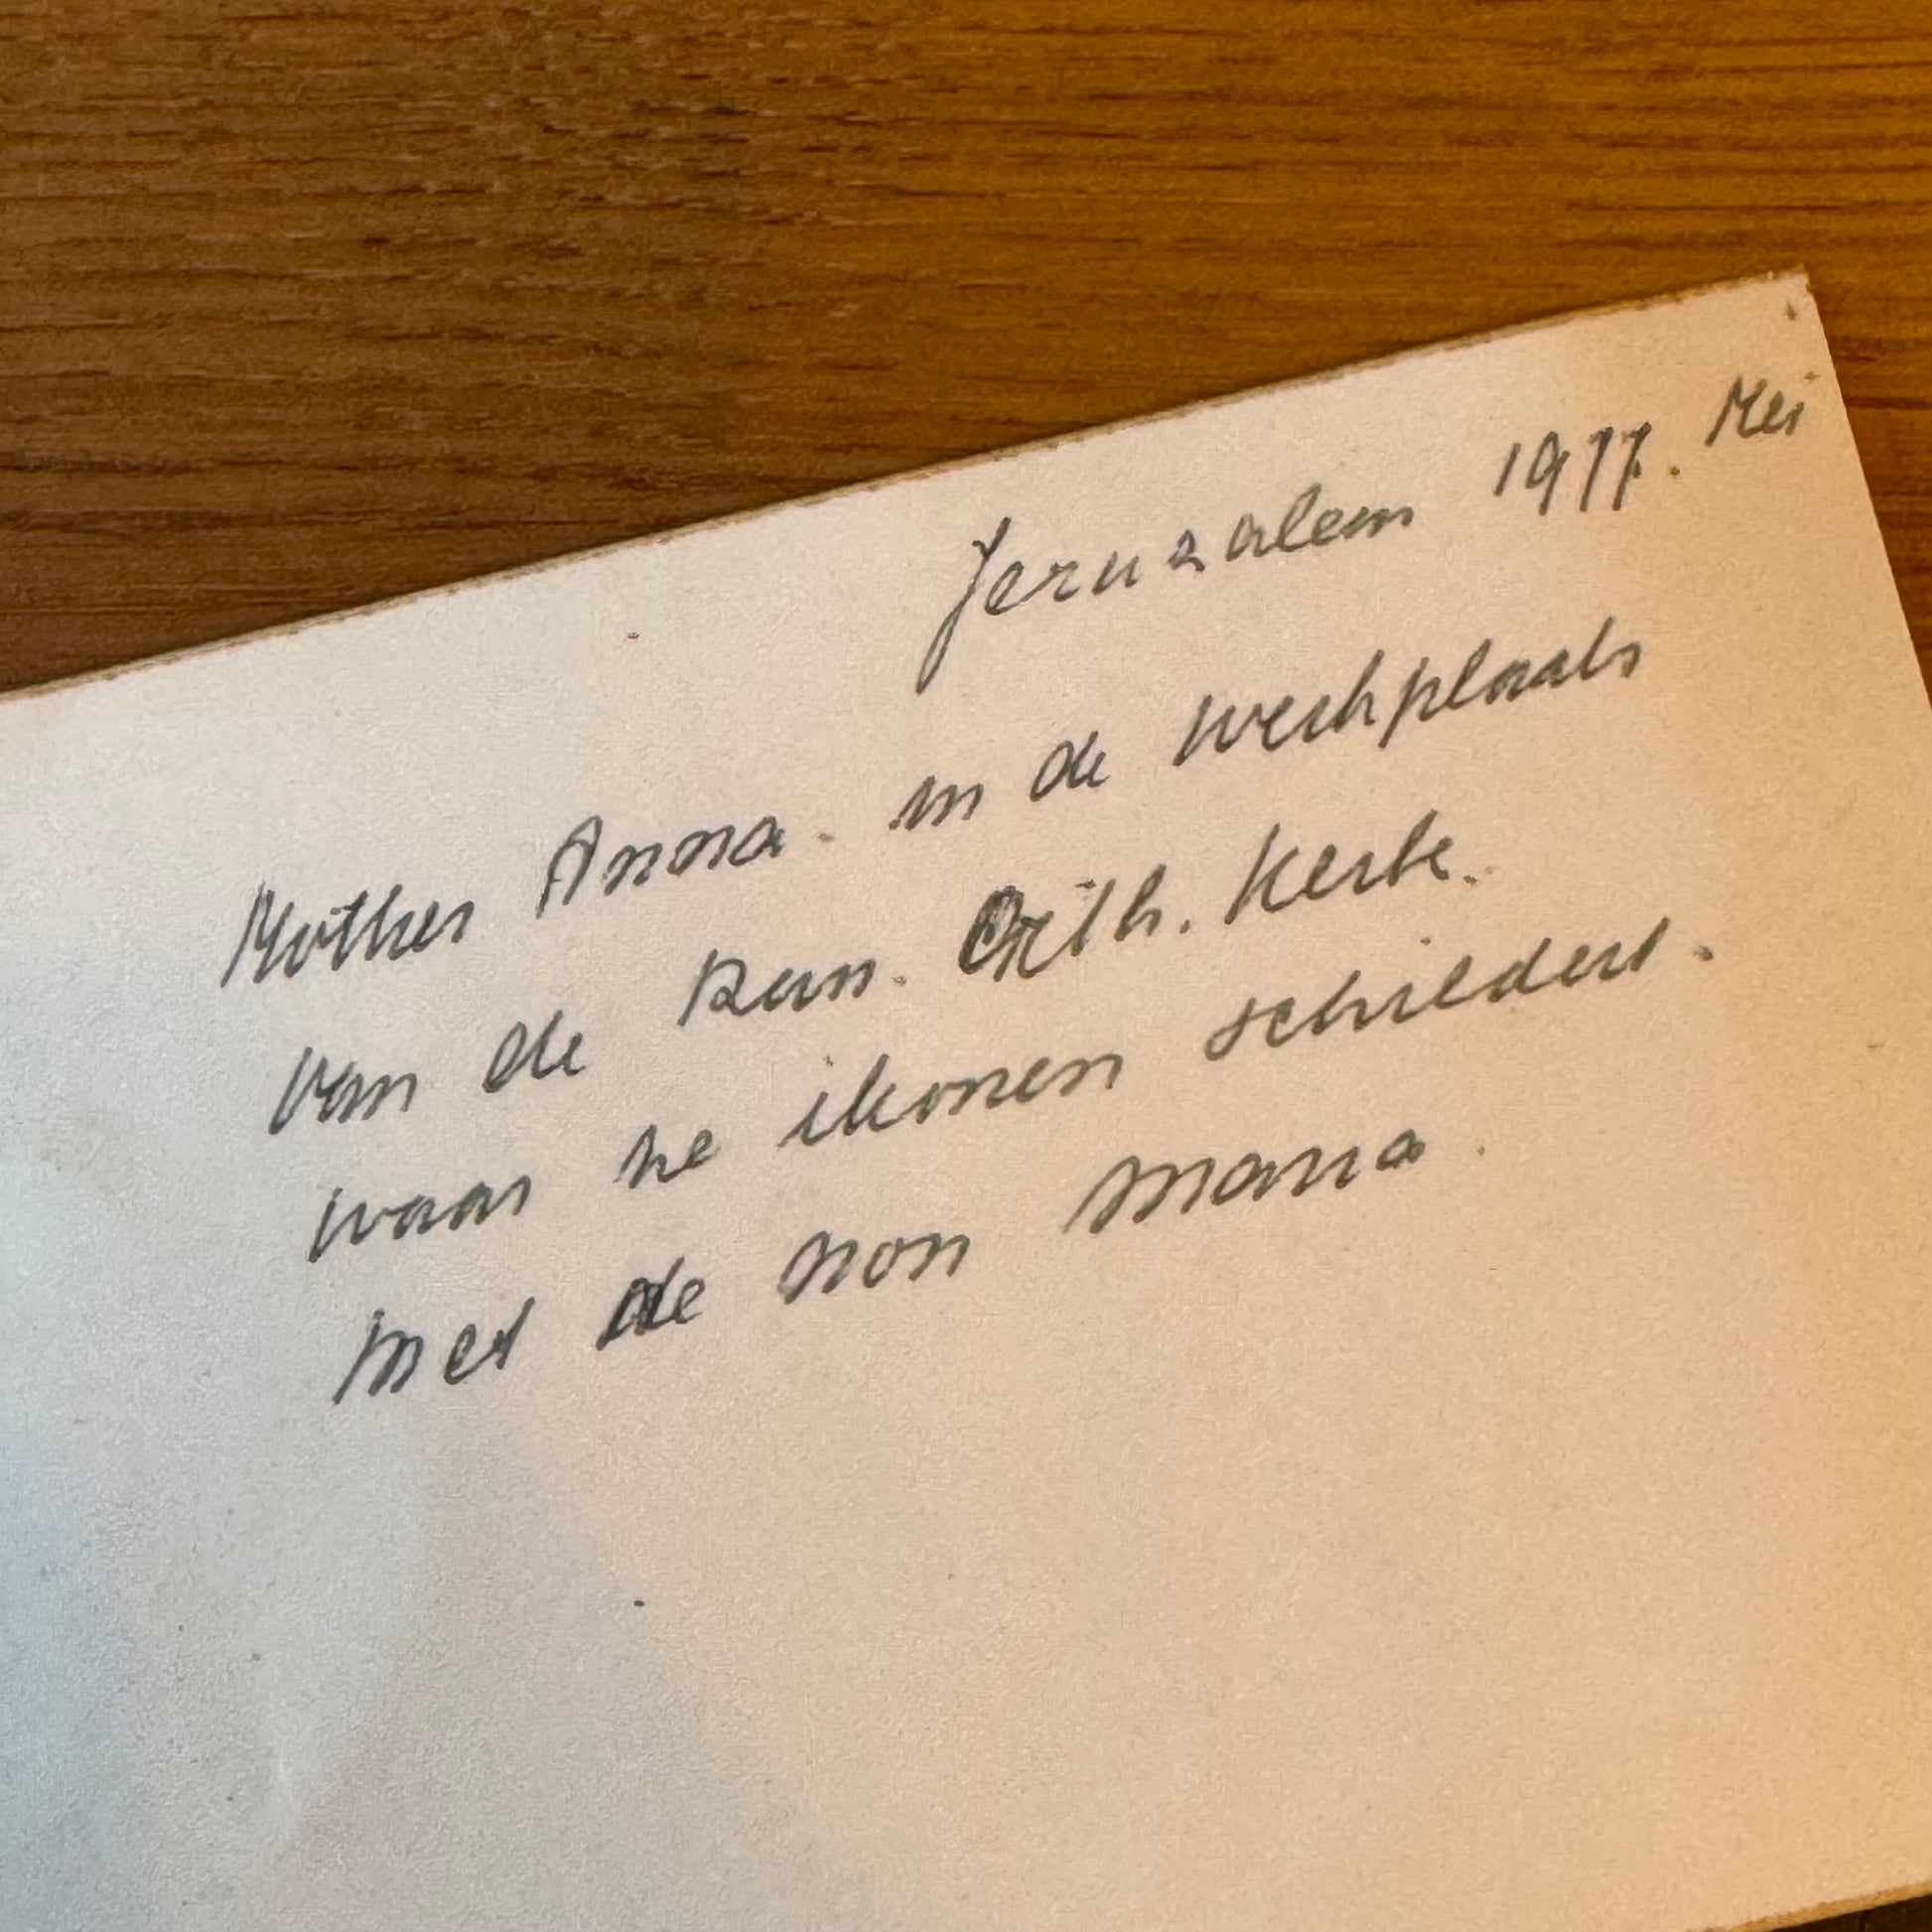 Jeruzalem 1977. Mei
Mother Anna. in de werkplaats
van de Russ. Orth. Kerk.
waar ze ikonen schildert.
met de non Maria.